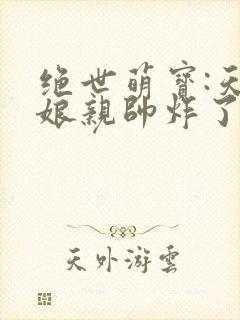 绝世萌寶:天
娘親帥炸了
天外游雲